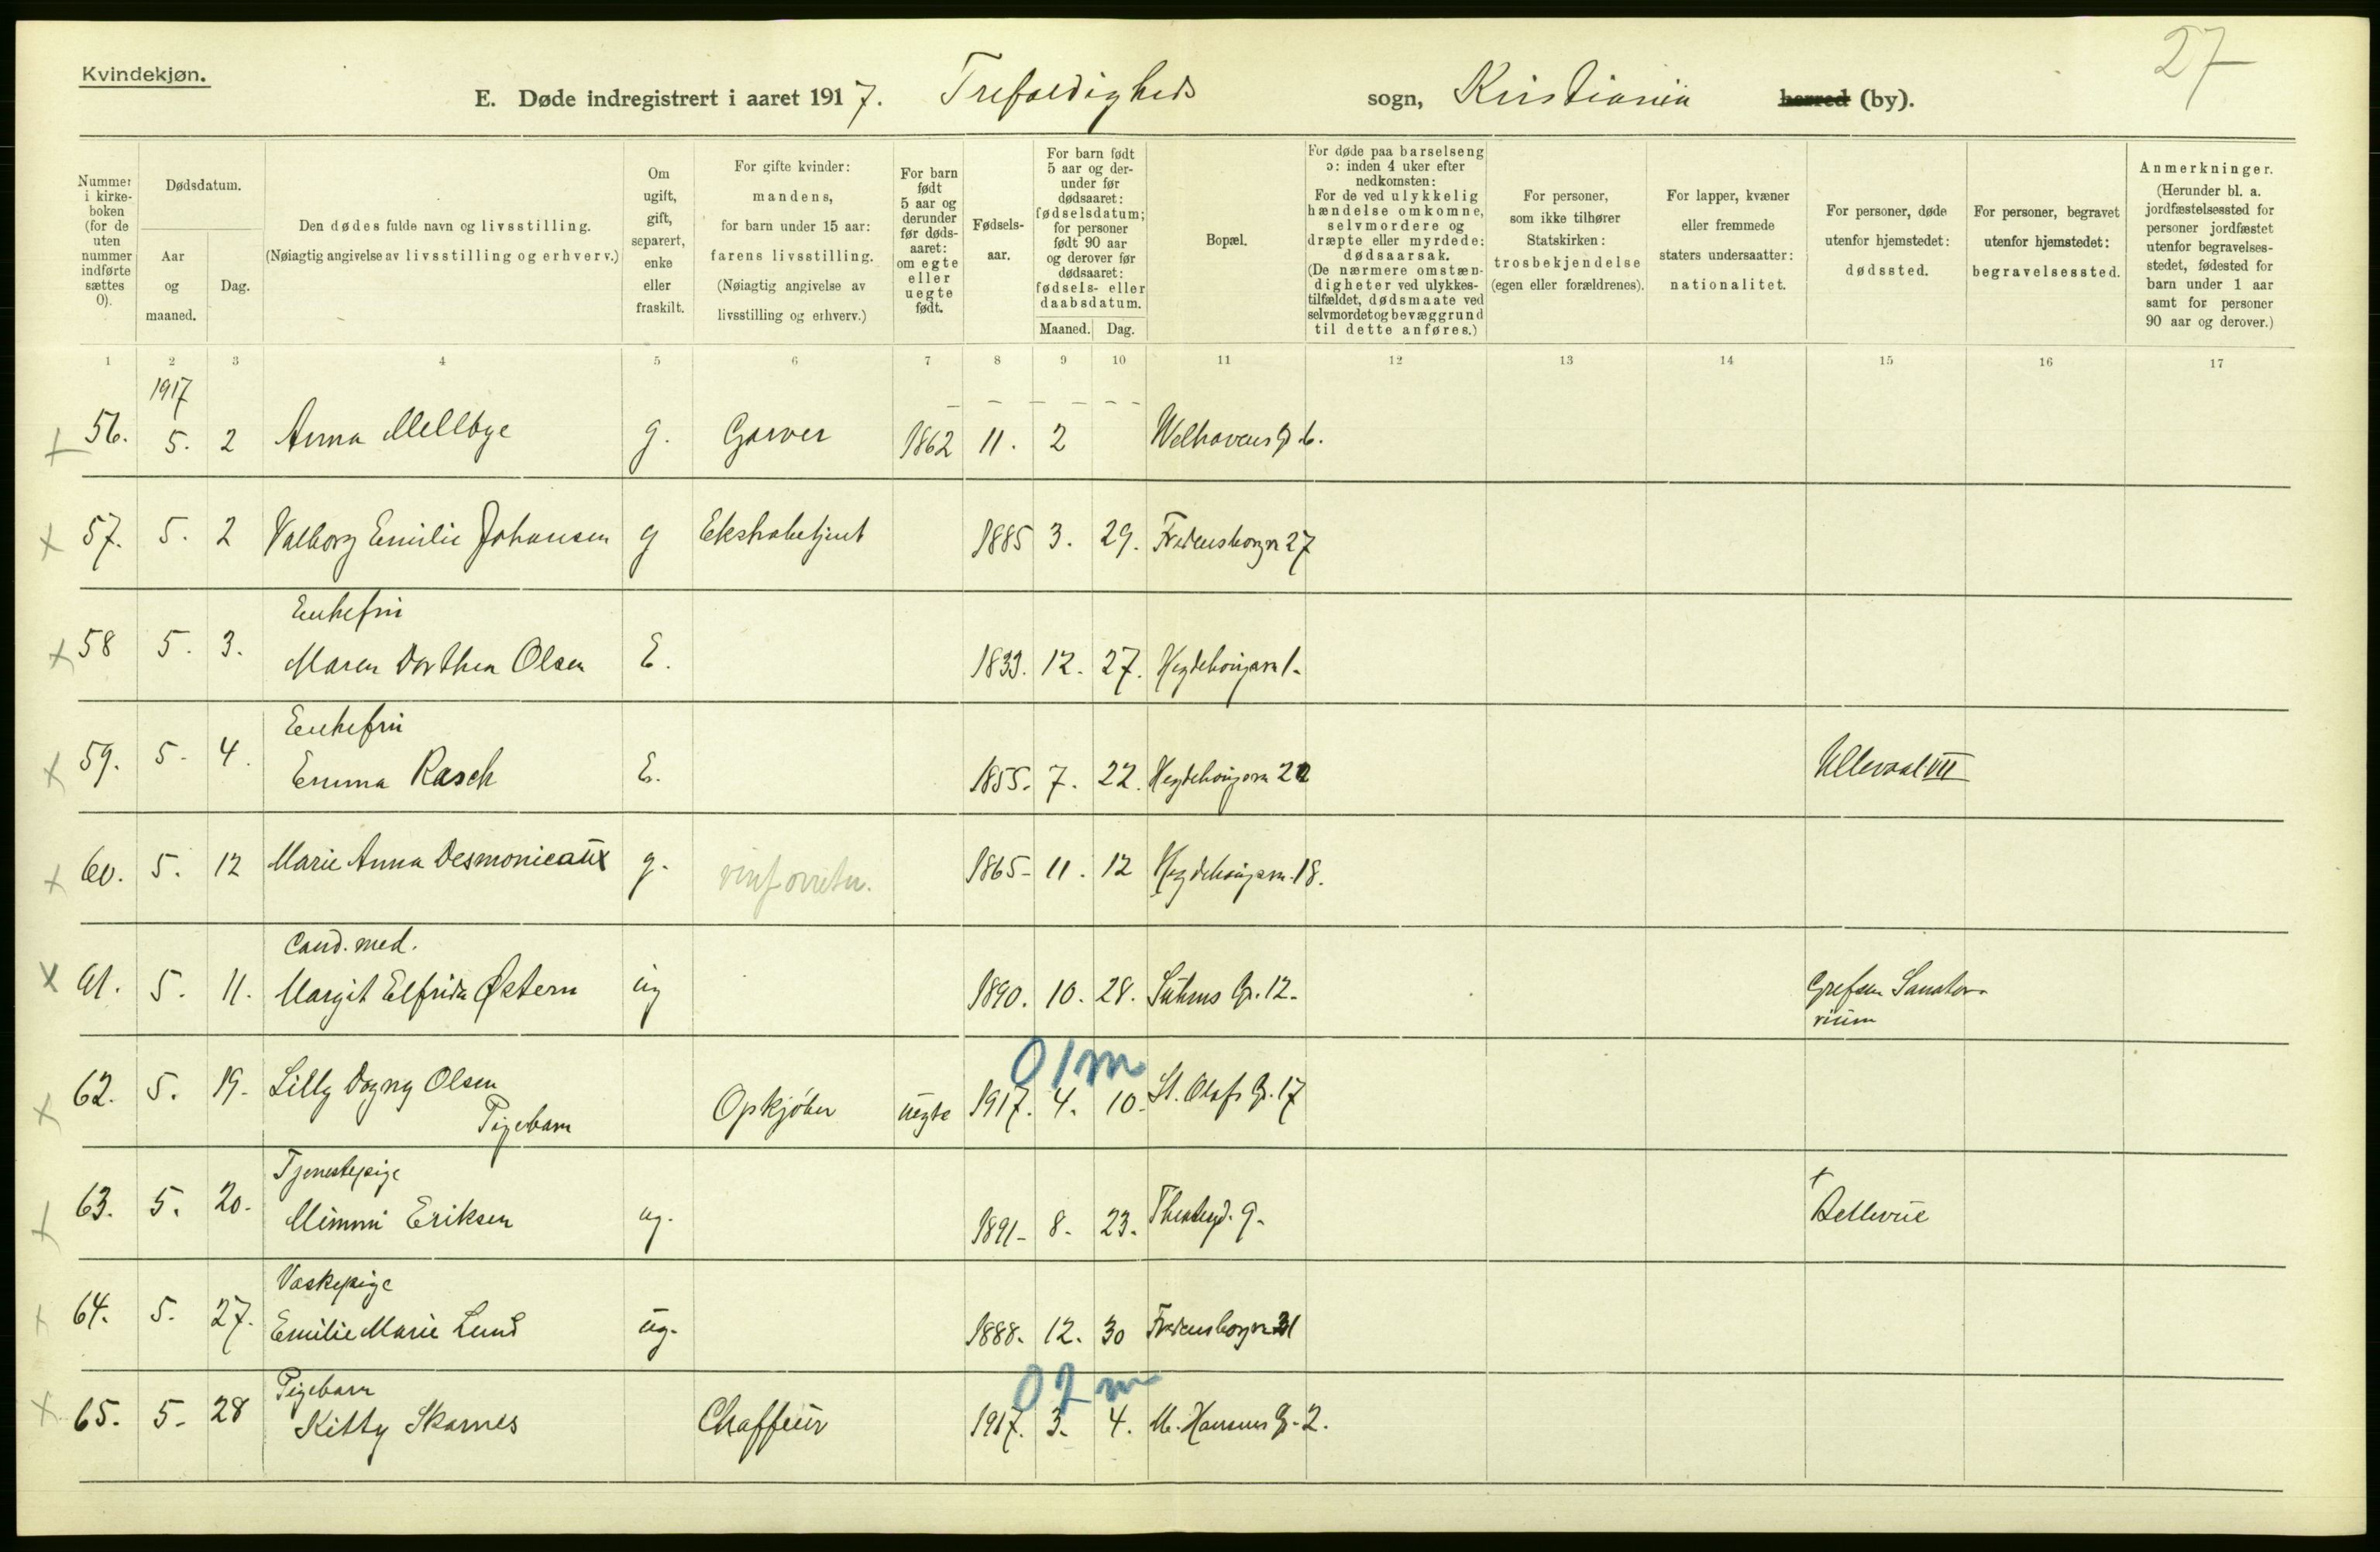 27
Kvindekjøn.
E. Døde indregistrert i aaret 1917. Trefoldigheds sogn, Kristiania herred (by).
Nummer i kirkeboken (for de uten nummer indførte sættes 0).
Dødsdatum.
Aar og maaned.
Dag.
Den dødes fulde navn og livsstilling.
(Nøiagtig angivelse av livsstilling og erhverv.)
Om ugift, gift, separert, enke eller fraskilt.
For gifte kvinder: mandens, for barn under 15 aar: farens livsstilling. (Nøiagtig angivelse av livsstilling og erhverv.)
For barn født 5 aar og derunder før døds-aaret: om egte eller uegte født.
Fødsels-aar.
For barn født 5 aar og der-under før dødsaaret: fødselsdatum; for personer født 90 aar og derover før dødsaaret: fødsels- eller daabsdatum.
Maaned. Dag.
Bopæl.
For døde paa barselseng ɔ: inden 4 uker efter nedkomsten: For de ved ulykkelig hændelse omkomne, selvmordere og dræpte eller myrdede: dødsaarsak. (De nærmere omstæn-digheter ved ulykkes-tilfældet, dødsmaate ved selvmordet og bevæggrund til dette anføres.)
For personer, som ikke tilhører Statskirken: trosbekjendelse (egen eller forældrenes).
For lapper, kvæner eller fremmede staters undersaatter: nationalitet.
For personer, døde utenfor hjemstedet: dødssted.
For personer, begravet utenfor hjemstedet: begravelsessted.
Anmerkninger. (Herunder bl. a. jordfæstelsessted for personer jordfæstet utenfor begravelses-stedet, fødested for barn under 1 aar samt for personer 90 aar og derover.)
1 2 3 4 5 6 7 8 9 10 11 12 13 14 15 16 17
1917
56. 5. 2 Anna Mellbye g. Garver 1862 11. 2 Welhavens G 6.
57. 5. 2 Valborg Emilie Johansen g Ekstrabetjent 1885 3. 29. Fredensborgv 27
Enkefru
58 5. 3. Maren Dorthea Olsen E. 1833. 12. 27. Hegdehaugsv 1.
Enkefru
59. 5. 4. Emma Rasch E. 1855. 7. 22. Hegdehaugsv 22 Ullevaal VII
60. 5. 12 Marie Anna Desmonieaux g. vinforretn. 1865 11. 12 Hegdehaugsv. 18.
Cand. med.
61. 5. 11. Margit Elfrida Østern ug 1890. 10. 28. Suhms G. 12. Grefsen Sanator-
rium
01m
62. 5. 19. Lilly Dagny Olsen Opkjøber uegte 1917. 4. 10. St. Olafs G. 17
Pigebarn
Tjenestepige
63. 5. 20. Mimmi Eriksen ug. 1891 8. 23. Theaterg. 9. Bellevue
Vaskepige
64. 5. 27. Emilie Marie Lund ug. 1888. 12. 30 Fredensborgv 31
02m
Pigebarn
65. 5. 28 Kitty Skarnes Chaffeur 1917. 3. 4. M. Hansens G. 2.